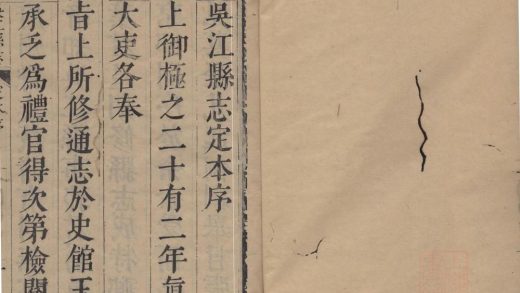 吳江縣志定本序
上御極之二十有二年直
大吏各奉
旨上所修通志於史館
承乏為禮官得次第檢